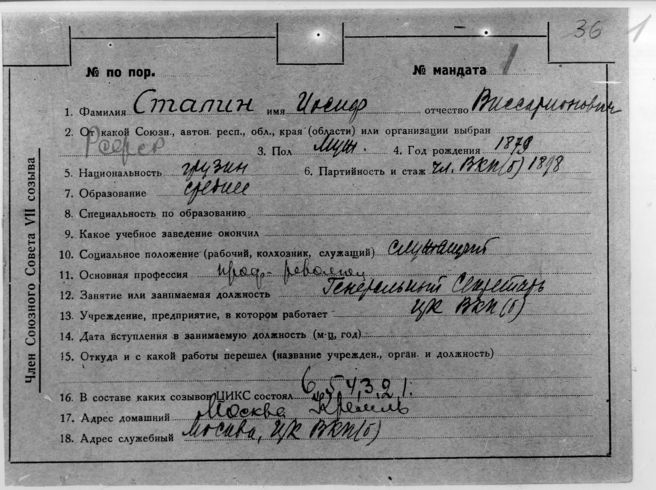 36 1
№ по пор. № мандата 1
1. Фамилия Сталин имя Иосиф отчество Виссарионович
2. От какой Союзн., автон. респ., обл., края (области) или организации выбран
РСФСР 3. Пол муж. 4. Год рождения 1879
5. Национальность грузин 6. Партийность и стаж чл. ВКП(б) 1898
7. Образование среднее
8. Специальность по образованию
9. Какое учебное заведение окончил
10. Социальное положение (рабочий, колхозник, служащий) служащий
11. Основная профессия проф-революц
12. Занятие или занимаемая должность Генеральный Секретарь
13. Учреждение, предприятие, в котором работает ЦК ВКП(б)
14. Дата вступления в занимаемую должность (м-ц, год)
15. Откуда и с какой работы перешел (название учрежден., орган. и должность)
16. В составе каких созывов ЦИКС состоял 6, 5, 4, 3, 2, 1.
17. Адрес домашний Москва Кремль
18. Адрес служебный Москва, ЦК ВКП(б)
Член Союзного Совета VII созыва